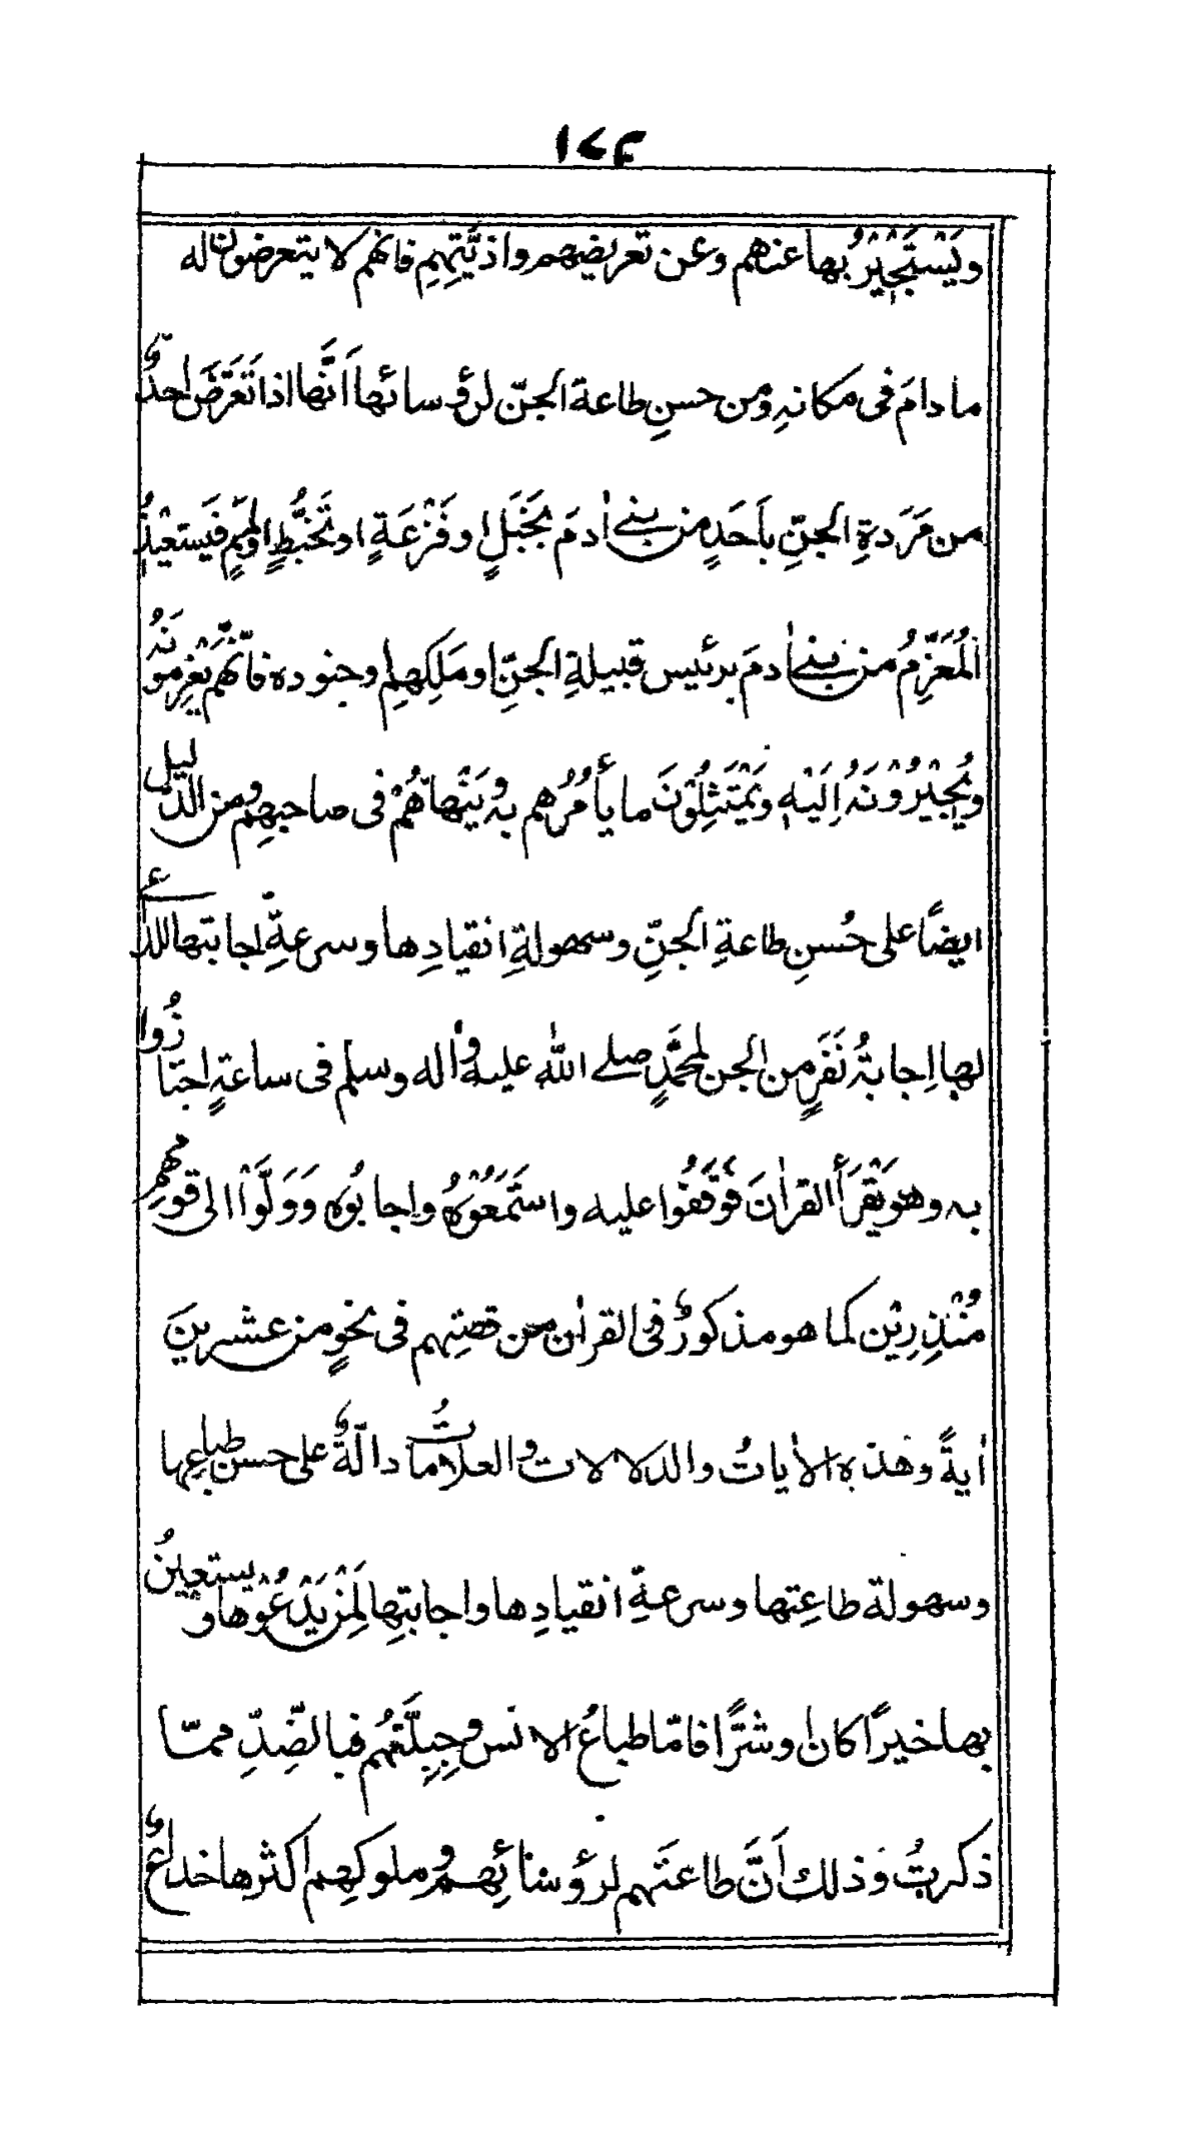 ١٧٤
ويَسْتَجِيْرُ بها عنهم وعن تعريضهم واذيَّتِهِمِ فانهم لا يتعرضون له
ما دامَ فى مكانهِ ومن حسنِ طاعة الجنّ لرؤسائها اَنَّها اذا تَعَرَّضَ احدٌ
من مَرَدةِ الجنِّ باَحَدٍ من بنے اٰدمَ بخَبَلٍ او فَزْعَةٍ او تَخَبُّطٍ اولَمَمٍ فَيَستعيْذُ
المُعَزِّمُ من بنے اٰدمَ برئيس قبيلةِ الجنِّ او مَلِكِهِم وجنوده فانَّهُم يُعْزِمونهُ
ويُجِيْرُوْنَهُ اِلَيْهِ ويَمْتَثِلُوْنَ ما يأمُرُهم به ويَنْهاهُمْ فى صاحبهم ومن الدليل
ايضًا على حُسنِ طاعةِ الجنِّ وسهولةِ انقيادِها وسرعةِ اجابتها للداعے
لها اِجابةُ نَفَرٍ من الجن لمحمَّدٍ صلے اللّٰه عليه واٰله وسلم فى ساعةٍ اجتازُوا
به وهو يَقْرَأُ القراٰنَ فَوَقَفُوا عليه واستَمَعُوْهُ واجابُوه وَوَلَّوْا الى قومِهِم
مُنْذِرِيْن كما هو مذكورٌ فى القراٰن من قصتِهم فى نحوٍ من عشرينَ
اٰيةً وهٰذه الاٰياتُ والدلالات والعلاماتُ دالّةٌ على حسن طباعِها
وسهولة طاعتِها وسرعةِ انقيادِها واجابتِها لِمَنْ يَدْعُوْها ويستعينُ
بها خيرًا كان او شرًّا فامّا طباعُ الانس وجِبِلَّتُهُم فبالضِدِّ ممّا
ذكرتُ وذلك اَنَّ طاعتَهم لرؤسائِهم وملوكِهِم اكثرها خداعٌ